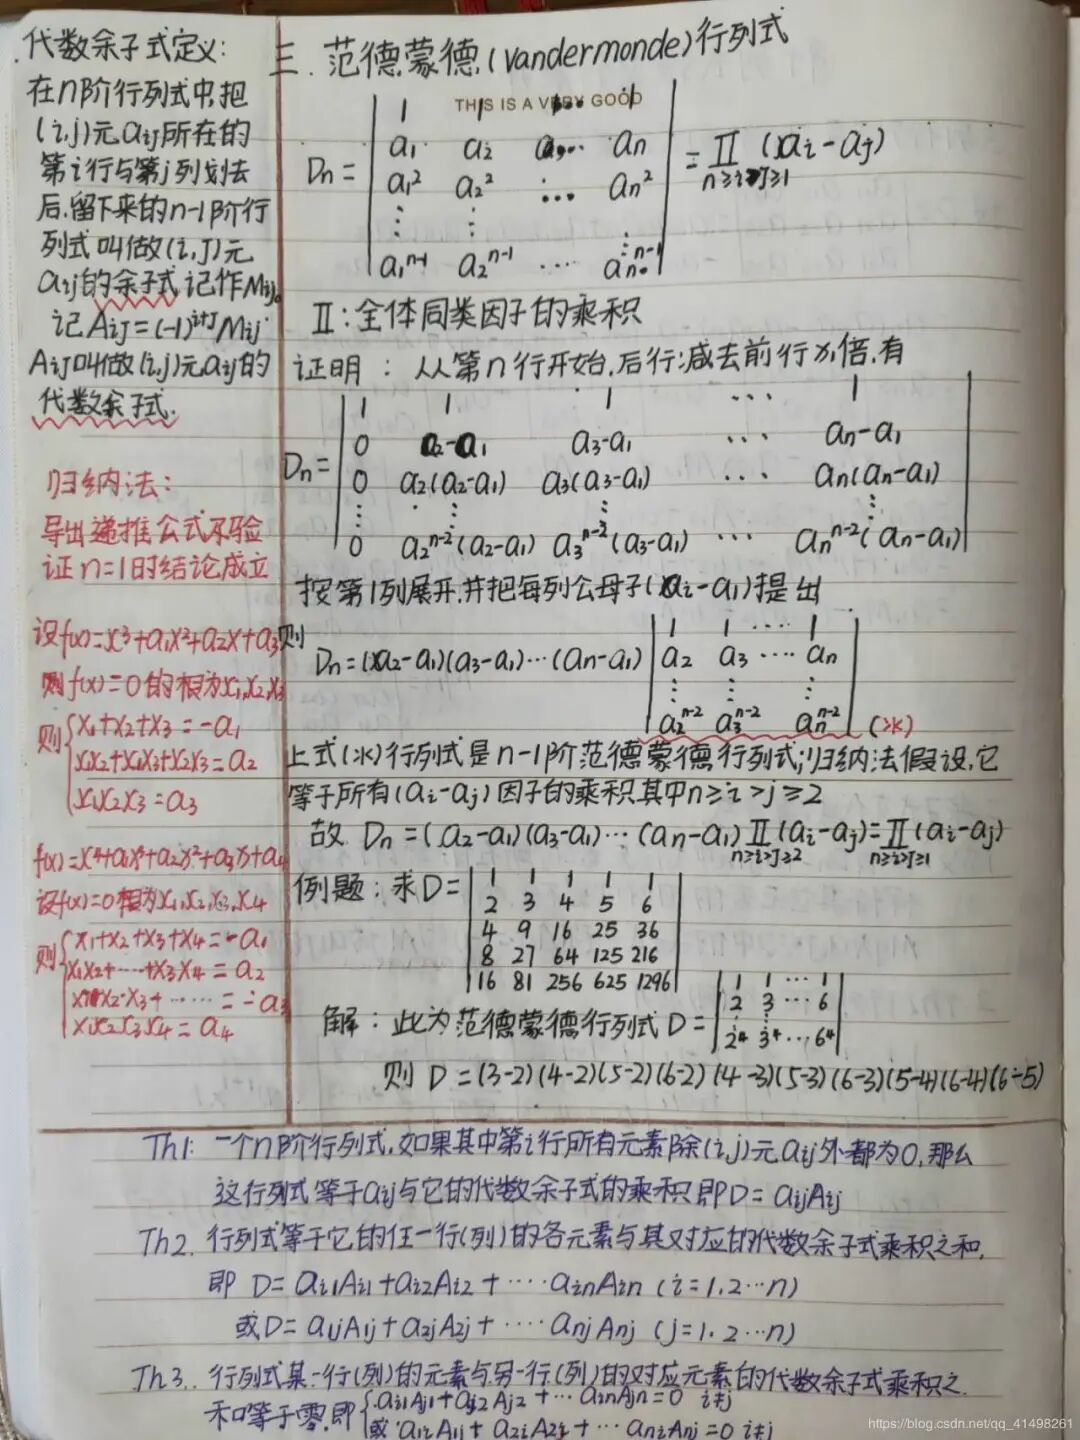 代数余子式定义:
在n阶行列式中,把
(i,j)元aij所在的
第i行与第j列划去
后,留下来的n-1阶行
列式叫做(i,j)元
aij的余子式,记作Mij。
记Aij=(-1)^{i+j}Mij.
Aij叫做(i,j)元aij的
代数余子式.
归纳法:
导出递推公式不验
证n=1时结论成立
设f(x)=x³+a₁x²+a₂x+a₃则
则f(x)=0的根为x₁,x₂,x₃
则{x₁+x₂+x₃=-a₁
x₁x₂+x₁x₃+x₂x₃=a₂
x₁x₂x₃=a₃
f(x)=x⁴+a₁x³+a₂x²+a₃x+a₄
设f(x)=0根为x₁,x₂,x₃,x₄
则{x₁+x₂+x₃+x₄=-a₁
x₁x₂+⋯+x₃x₄=a₂
x₁x₂x₃+⋯⋯=-a₃
x₁x₂x₃x₄=a₄
三.范德蒙德(Vandermonde)行列式
THIS IS A VERY GOOD
1 1 ⋯ 1
a₁ a₂ ⋯ an
Dn= a₁² a₂² ⋯ an² =Π(ai-aj)
n≥i>j≥1
⋮ ⋮ ⋮
a₁^{n-1} a₂^{n-1} ⋯ an^{n-1}
Π:全体同类因子的乘积
证明:从第n行开始,后行减去前行x₁倍,有
1 1 1 ⋯ 1
0 a₂-a₁ a₃-a₁ ⋯ an-a₁
Dn= 0 a₂(a₂-a₁) a₃(a₃-a₁) ⋯ an(an-a₁)
⋮ ⋮ ⋮
0 a₂^{n-2}(a₂-a₁) a₃^{n-2}(a₃-a₁) ⋯ an^{n-2}(an-a₁)
按第1列展开,并把每列公母子(ai-a₁)提出
1 1 ⋯ 1
Dn=(a₂-a₁)(a₃-a₁)⋯(an-a₁) a₂ a₃ ⋯ an
⋮ ⋮ ⋮
a₂^{n-2} a₃^{n-2} an^{n-2} (※)
上式(※)行列式是n-1阶范德蒙德行列式;归纳法假设,它
等于所有(ai-aj)因子的乘积,其中n≥i>j≥2
故 Dn=(a₂-a₁)(a₃-a₁)⋯(an-a₁)Π(ai-aj)=Π(ai-aj)
n≥i>j≥2 n≥i>j≥1
例题:求D= 1 1 1 1 1
2 3 4 5 6
4 9 16 25 36
8 27 64 125 216
16 81 256 625 1296
解:此为范德蒙德行列式D= 1 1 ⋯ 1
2 3 ⋯ 6
⋮ ⋮
2⁴ 3⁴ ⋯ 6⁴
则 D=(3-2)(4-2)(5-2)(6-2)(4-3)(5-3)(6-3)(5-4)(6-4)(6-5)
Th1: 一个n阶行列式,如果其中第i行所有元素除(i,j)元aij外都为0,那么
这行列式等于aij与它的代数余子式的乘积,即D=aijAij
Th2. 行列式等于它的任一行(列)的各元素与其对应的代数余子式乘积之和,
即 D=ai1Ai1+ai2Ai2+⋯⋯ainAin (i=1,2⋯n)
或D=a1jA1j+a2jA2j+⋯⋯anjAnj (j=1,2⋯n)
Th3.. 行列式某一行(列)的元素与另一行(列)的对应元素的代数余子式乘积之
和等于零,即{ai1Aj1+ai2Aj2+⋯ainAjn=0 i≠j
或 a1iA1j+a2iA2j+⋯aniAnj=0 i≠j
https://blog.csdn.net/qq_41498261